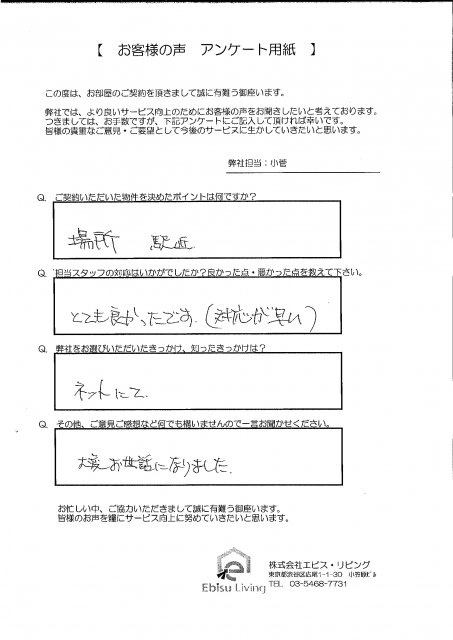 【 お客様の声 アンケート用紙 】
この度は、お部屋のご契約を頂きまして誠に有難う御座います。
弊社では、より良いサービス向上のためにお客様の声をお聞きしたいと考えております。
つきましては、お手数ですが、下記アンケートにご記入して頂ければ幸いです。
皆様の貴重なご意見・ご要望として今後のサービスに生かしていきたいと思います。
弊社担当：小菅
Q. ご契約いただいた物件を決めたポイントは何ですか？
場所 駅近
Q. 担当スタッフの対応はいかがでしたか？良かった点・悪かった点を教えて下さい。
とても良かったです。（対応が早い）
Q. 弊社をお選びいただいたきっかけ、知ったきっかけは？
ネットにて.
Q. その他、ご意見ご感想など何でも構いませんので一言お聞かせください。
大変お世話になりました.
お忙しい中、ご協力いただきまして誠に有難う御座います。
皆様のお声を糧にサービス向上に努めていきたいと思います。
株式会社エビス・リビング
東京都渋谷区広尾1-1-30 小笠原ビル
TEL 03-5468-7731
Ebisu Living